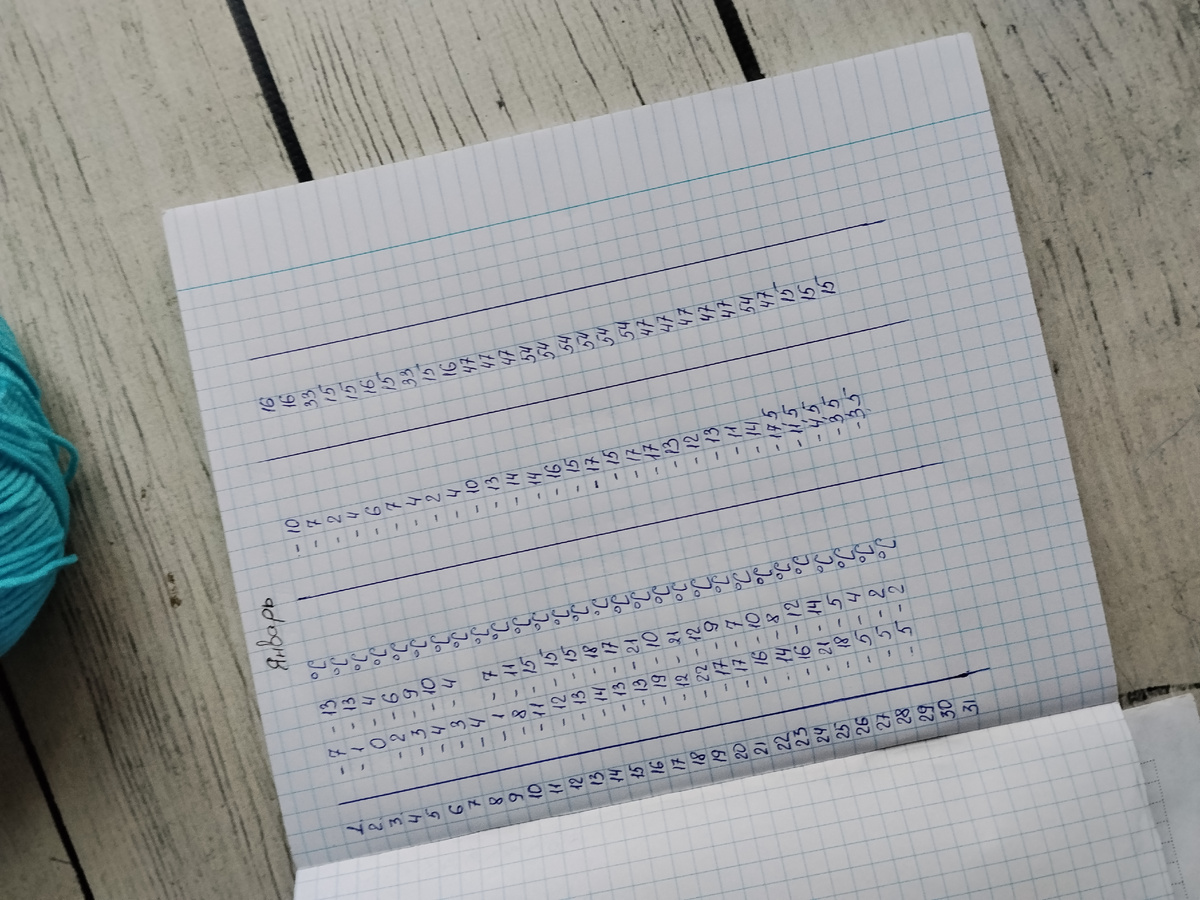 Январь
1. - 7 - 13 °C - 10 16
2. - 1 - 13 °C - 7 16
3. 0 - 4 °C - 2 33
4 - 2 - 6 °C - 4 15
5 - 3 - 9 °C - 6 15
6 - 4 - 10 °C - 7 16
7 - 3 - 4 °C - 4 15
8 - 4 °C - 2 33
9 - 1 - 7 °C - 4 15
10 - 8 - 11 °C - 10 16
11 - 11 - 15 °C - 13 47
12 - 12 - 15 °C - 14 47
13 - 13 - 15 °C - 14 47
14 - 14 - 18 °C - 16 54
15 - 13 - 17 °C - 15 54
16 - 13 - 21 °C - 17 54
17 - 19 - 10 °C - 15 54
18 - 12 - 21 °C - 17 54
19 - 22 - 12 °C - 17 54
20 - 17 - 9 °C - 23 47
21 - 17 - 7 °C - 12 47
22 - 16 - 10 °C - 13 47
23 - 14 - 8 °C - 11 47
24 - 16 - 12 °C - 14 47
25 - 21 - 14 °C - 17,5 54
26 - 18 - 5 °C - 11,5 47
27 - 5 - 4 °C - 4,5 15
28 - 5 - 2 °C - 3,5 15
29 - 5 - 2 °C - 3,5 15
30
31